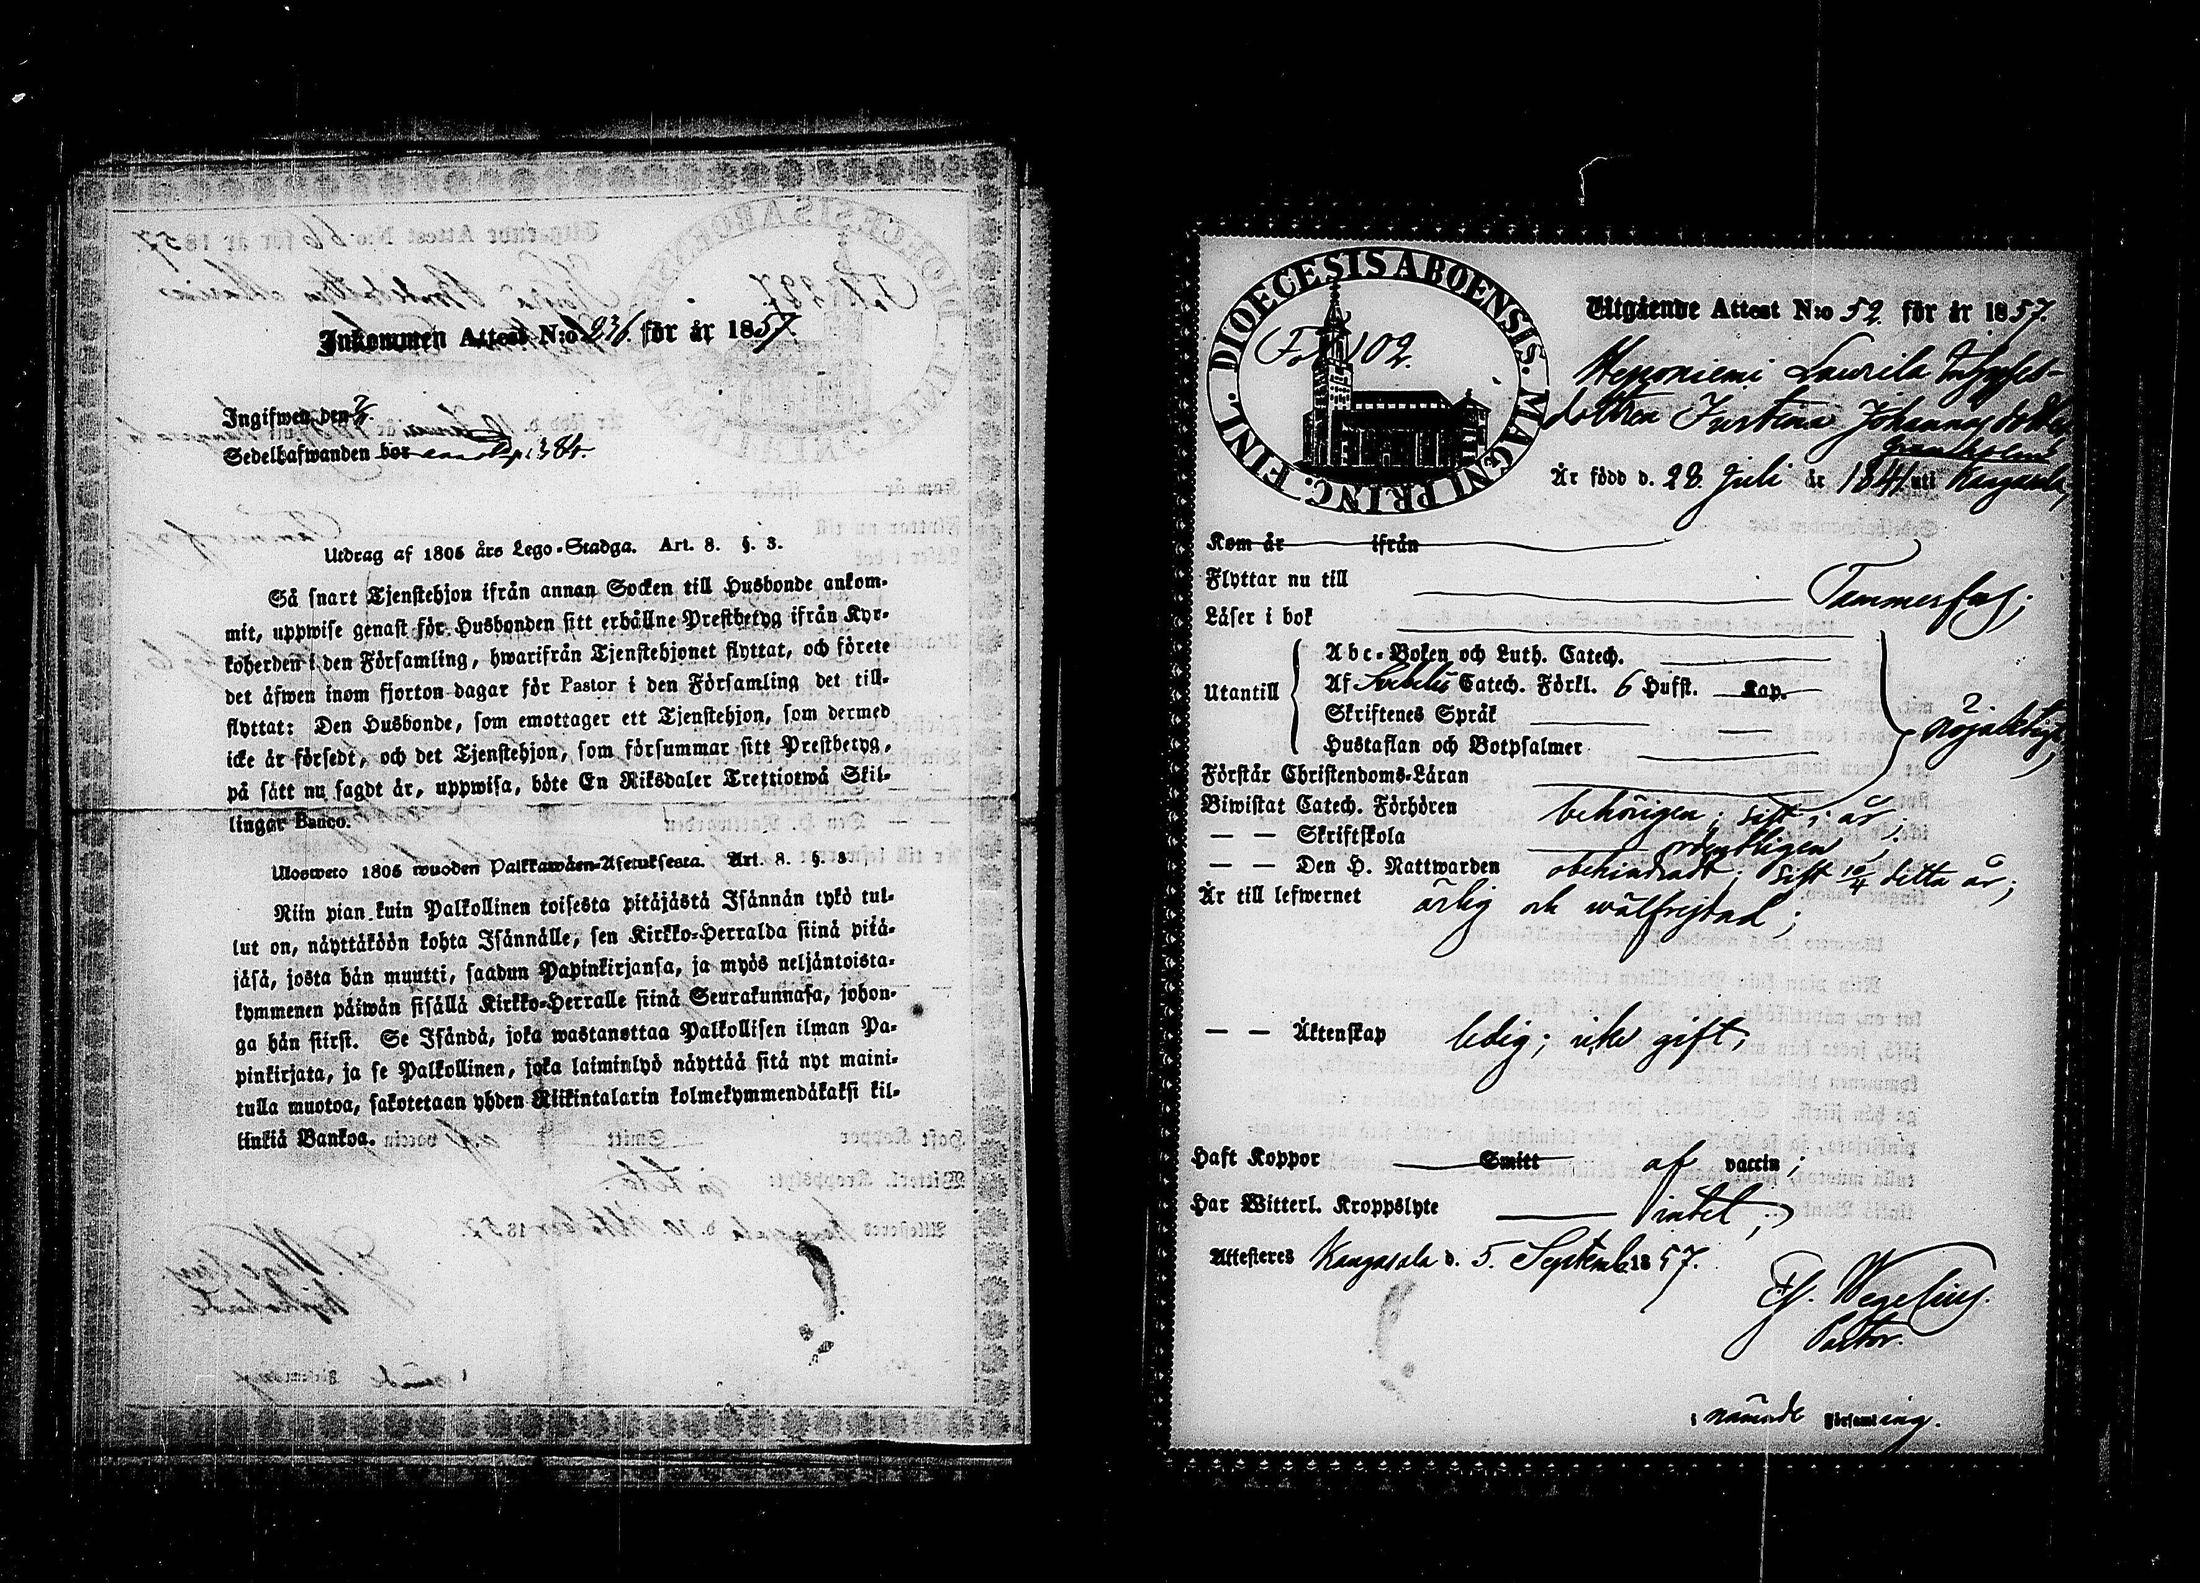 Inkommen Attest N:o 236. för år 1857.
Ingifwen den
Sedelhafwanden bor
Utdrag af 1805 års Lego-Stadga. Art. 8. §. 3.
Så snart Tjenstehjon ifrån annan Socken till Husbonde ankom-
mit, uppwise genast för Husbonden sitt erhållne Prestbetyg ifrån Kyr-
koherden i den Församling, hwarifrån Tjenstehjonet flyttat, och förete
det äfwen inom fjorton dagar för Pastor i den Församling det till-
flyttat: Den Husbonde, som emottager ett Tjenstehjon, som dermed
icke är försedt, och det Tjenstehjon, som försummar sitt Prestbetyg,
på sätt nu sagdt är, uppwisa, böte En Riksdaler Trettiotwå Skil-
lingar Banco.
Ulosweto 1805 wuoden Palkkawäen-Asetuksesta. Art. 8. §. 3
Niin pian kuin Palkollinen toisesta pitäjästä Isännän tykö tul-
lut on, näyttäköön kohta Isännälle, sen Kirkko-Herralda siinä pitä-
jäsä, josta hän muutti, saadun Papinkirjansa, ja myös neljäntoista-
kymmenen päiwän sisällä Kirkko-Herralle siinä Seurakunnasa, johon-
ga hän siirst. Se Isändä, joka wastanottaa Palkollisen ilman Pa-
pinkirjata, ja se Palkollinen, joka laiminlyö näyttää sitä nyt maini-
tulla muotoa, sakotetaan yhden Riikintalarin kolmekymmendäkaksi kil-
linkiä Bankoa.
DIOECESIS ABOENSIS. MAGNI PRINC. FINL.
Fol 102.
Utgående Attest N:o 52. för år 1857.
Hepponiemi Laurila
dottren Justina Johannsdotter
Är född d. 28. Juli år 1841 uti Kangasala,
Kom år ifrån
Flyttar nu till Tammerfors;
Läser i bok
Utantill
Abc-Boken och Luth. Catech.
Af Svebelii Catech. Förkl. 6 Hufst. Kap.
Skriftenes Språk
Hustaflan och Botpsalmer
nöjaktigt;
Förstår Christendoms-Läran
Biwistat Catech. Förhören behörigen; sist i år;
— — Skriftskola ordentligen;
— — Den H. Nattwarden obehindradt; sist 10/4 detta år;
Är till lefwernet ärlig och wälfrejdad;
— — Äktenskap ledig; icke gift;
Haft Koppor Smitt af vaccin;
Har Witterl. Kroppslyte intet;
Attesteres Kangasala d. 5. Septemb. 1857.
Wegelius.
Pastor.
i nämnde Församling.